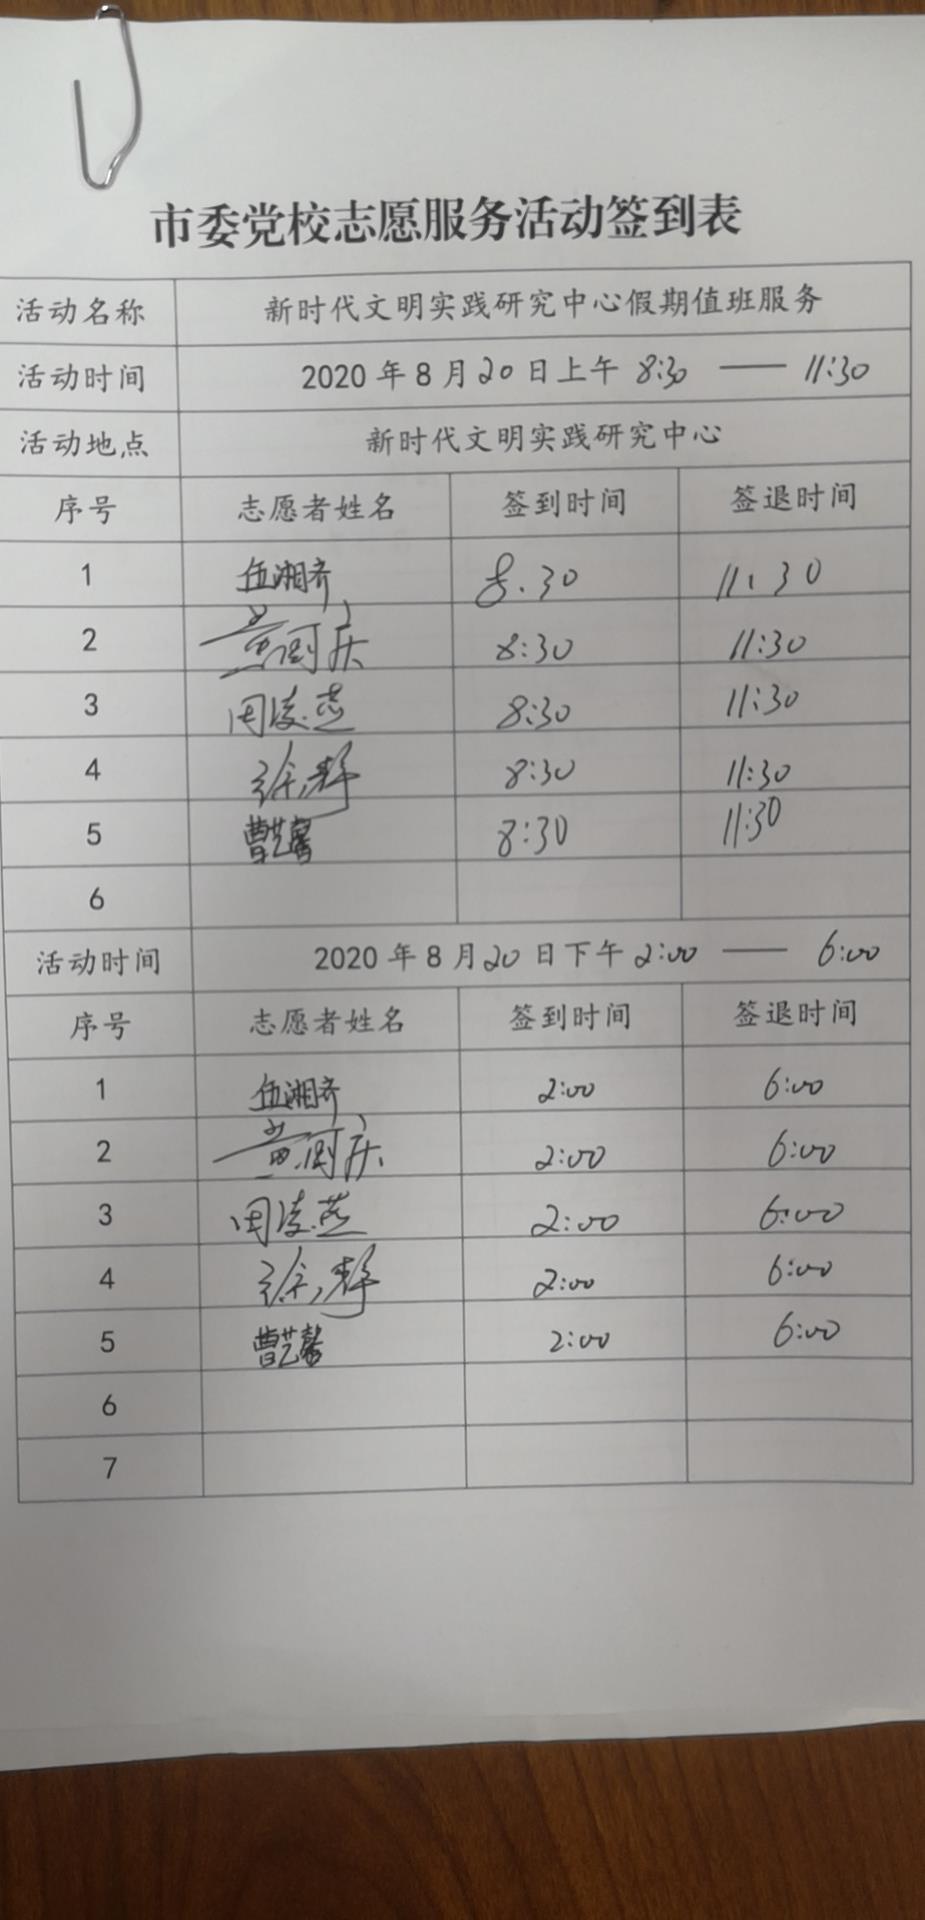 市委党校志愿服务活动签到表
活动名称 新时代文明实践研究中心假期值班服务
活动时间 2020 年 8 月 20 日上午 8:30 —— 11:30
活动地点 新时代文明实践研究中心
序号 志愿者姓名 签到时间 签退时间
1 伍湘齐 8.30 11:30
2 黄 庆 8:30 11:30
3 周凌燕 8:30 11:30
4 徐静 8:30 11:30
5 曹艺馨 8:30 11:30
6
活动时间 2020 年 8 月 20 日下午 2:00 —— 6:00
序号 志愿者姓名 签到时间 签退时间
1 伍湘齐 2:00 6:00
2 黄 庆 2:00 6:00
3 周凌燕 2:00 6:00
4 徐静 2:00 6:00
5 曹艺馨 2:00 6:00
6
7